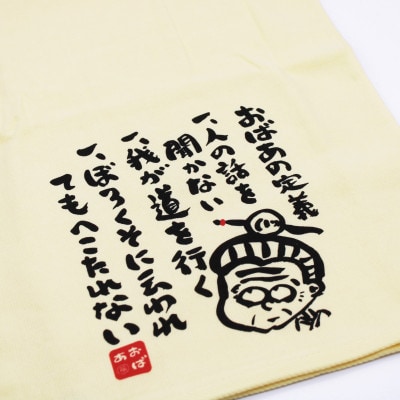 おばあの定義
一、人の話を
聞かない
一、我が道を行く
一、ぼろくそに云われ
てもへこたれない
おば
あ